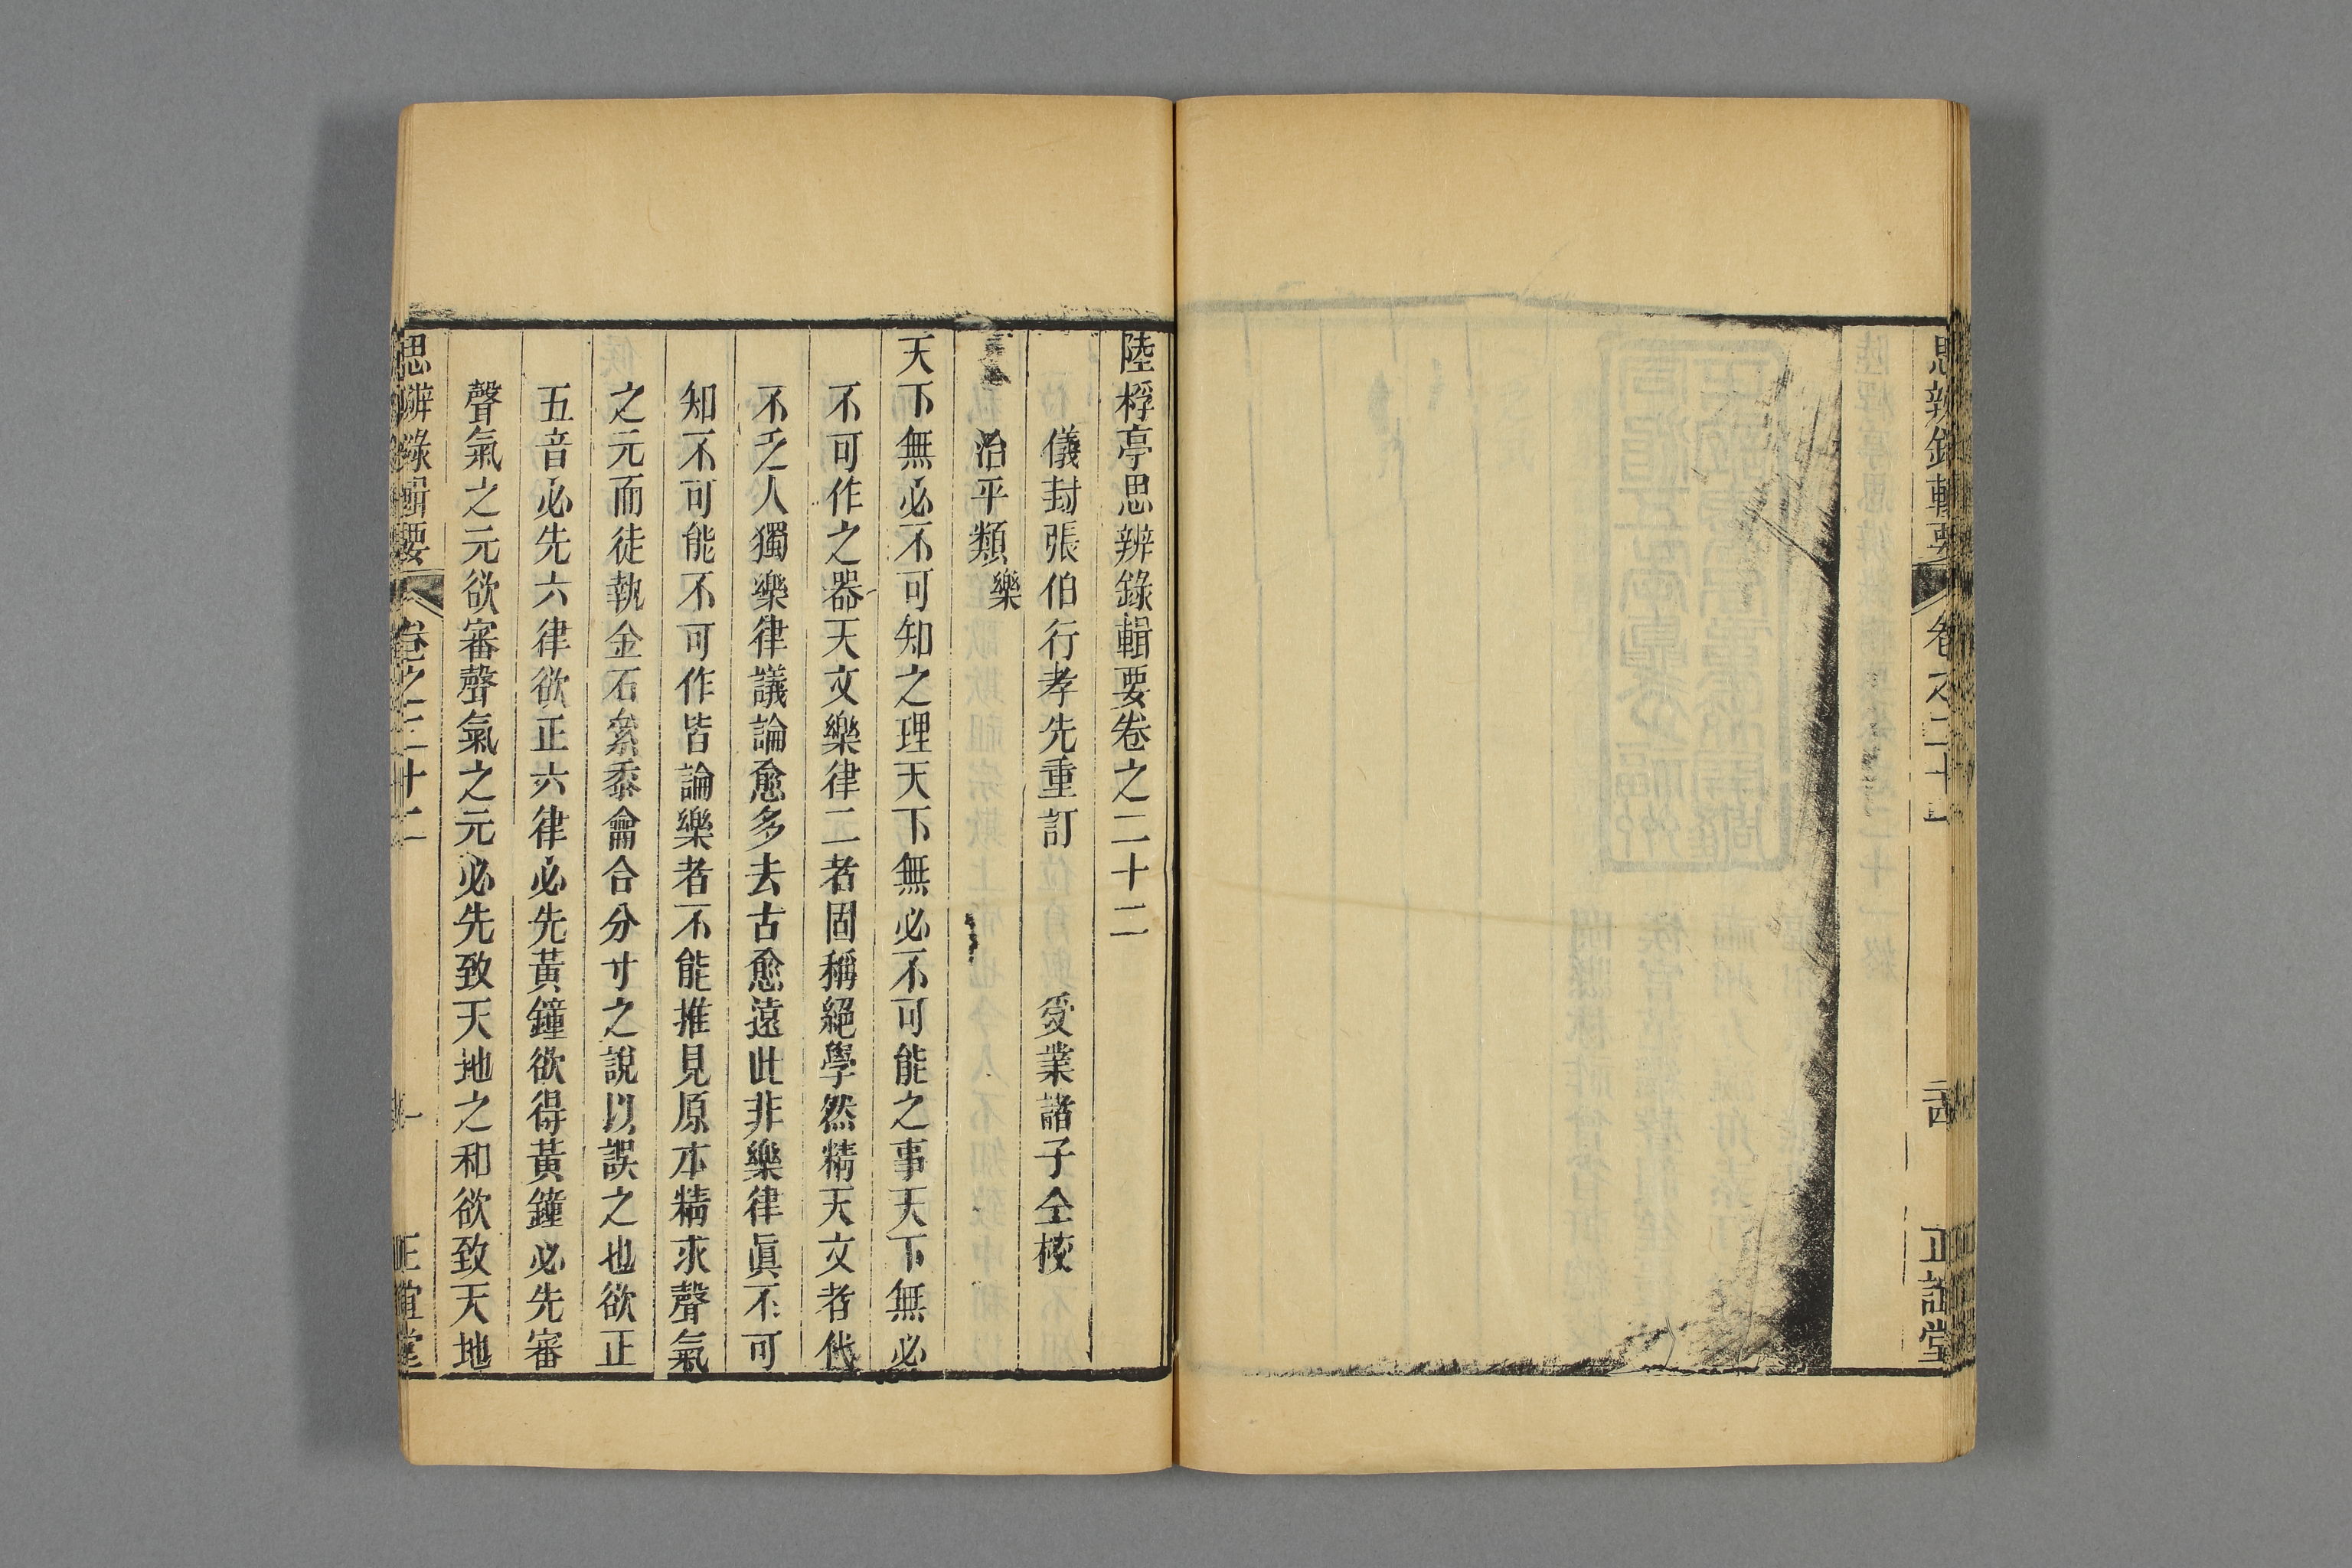 思辨錄輯要 卷之二十一 二四 正誼堂
陸桴亭思辨錄輯要卷之二十二
儀封張伯行孝先重訂 受業諸子仝校
治平類 樂
天下無必不可知之理天下無必不可能之事天下無必
不可作之器天文樂律二者固稱絕學然精天文者代
不乏人獨樂律議論愈多去古愈遠此非樂律眞不可
知不可能不可作皆論樂者不能推見原本精求聲氣
之元而徒執金石絫黍龠合分寸之說以誤之也欲正
五音必先六律欲正六律必先黃鐘欲得黃鐘必先審
聲氣之元欲審聲氣之元必先致天地之和欲致天地
思辨錄輯要 卷之二十二 一 正誼堂